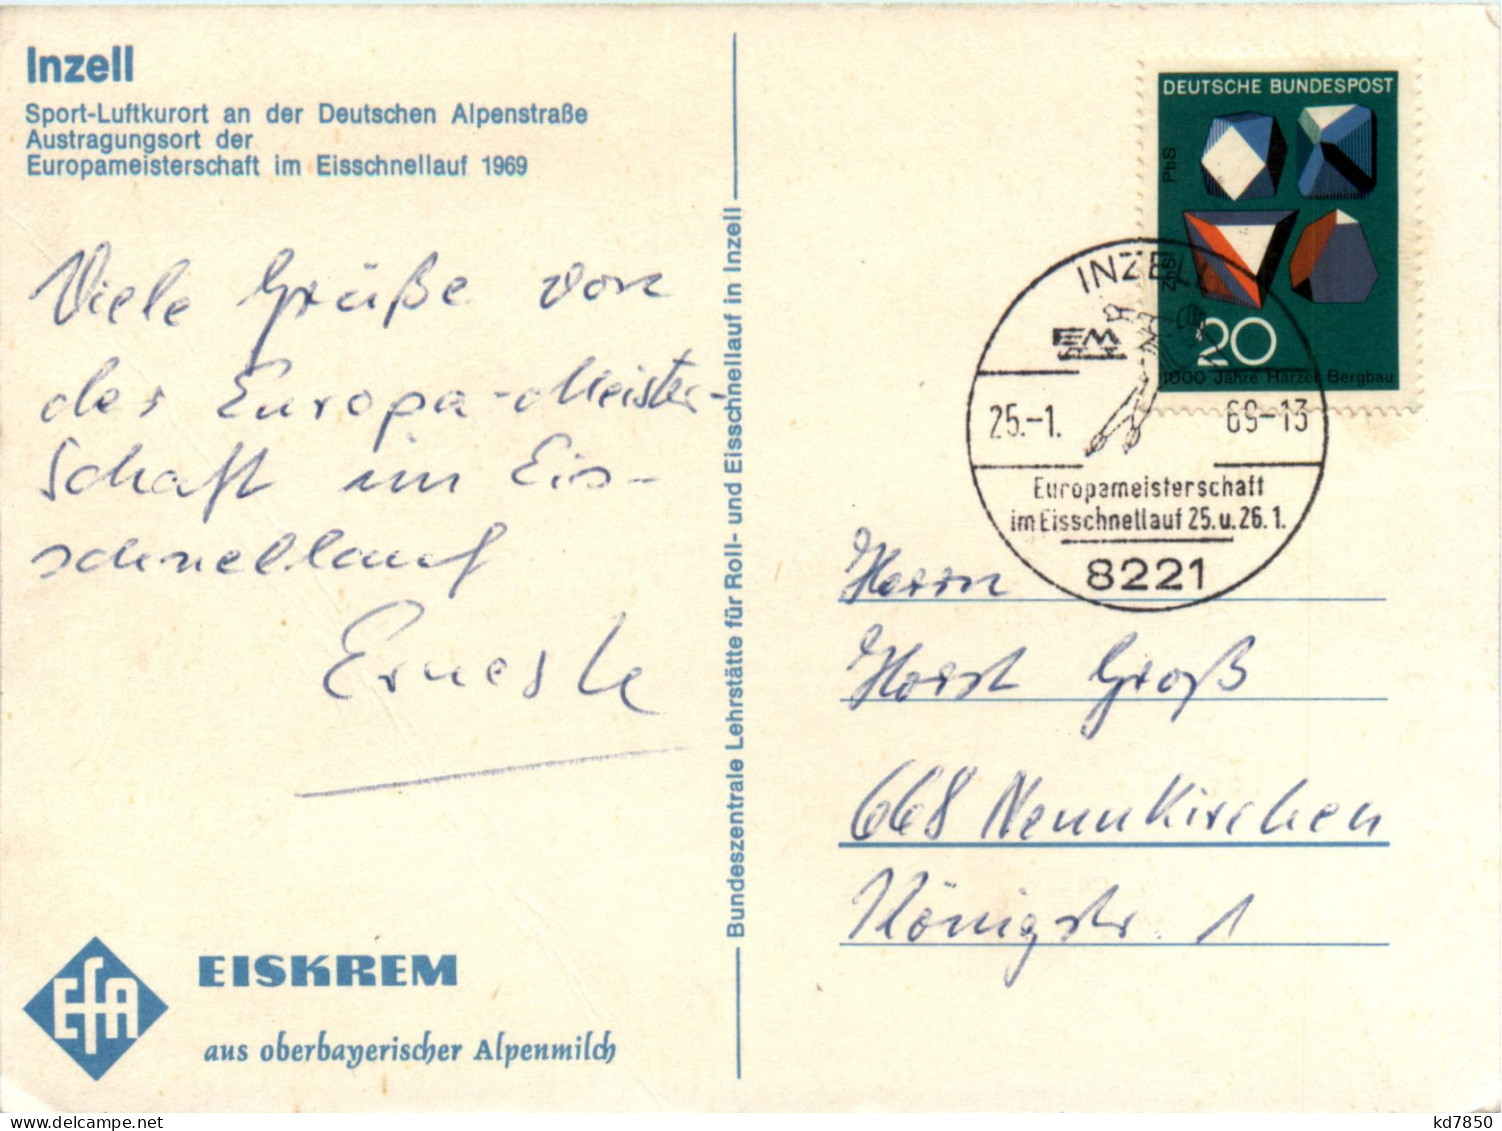 Inzell
Sport-Luftkurort an der Deutschen Alpenstraße
Austragungsort der
Europameisterschaft im Eisschnellauf 1969
Viele Grüße von
der Europa-Meister-
schaft im Eis-
schnellauf
EfA
EISKREM
aus oberbayerischer Alpenmilch
Bundeszentrale Lehrstätte für Roll- und Eisschnellauf in Inzell
DEUTSCHE BUNDESPOST
PbS
ZnS
20
1000 Jahre Harzer Bergbau
INZELL
EM
25.-1. 69-13
Europameisterschaft
im Eisschnellauf 25. u. 26. 1.
8221
Herrn
Horst Groß
668 Neunkirchen
Königstr. 1
kd7850
delcampe.net